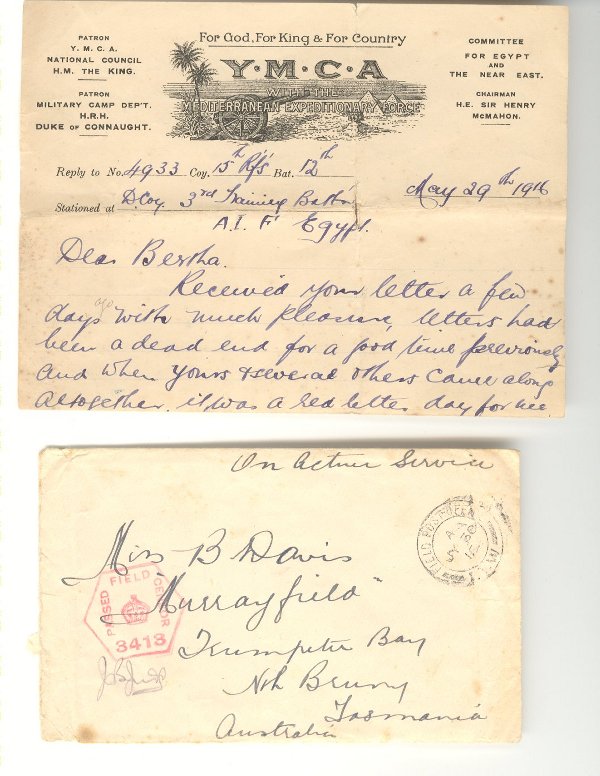 For God, For King & For Country
PATRON
Y. M. C. A.
NATIONAL COUNCIL
H.M. THE KING.
PATRON
MILITARY CAMP DEP'T.
H.R.H.
DUKE OF CONNAUGHT.
Y·M·C·A
WITH THE
MEDITERRANEAN EXPEDITIONARY FORCE
COMMITTEE
FOR EGYPT
AND
THE NEAR EAST.
CHAIRMAN
H.E. SIR HENRY
McMAHON.
Reply to No. 4933 Coy. 15th Rfs Bat. 12th
May 29th 1916
Stationed at D Coy 3rd Training Battn
A.I.F. Egypt.
Dear Bertha.
Received your letter a few
days ago with much pleasure, letters had
been a dead end for a good time previously
and when yours & several others came along
altogether it was a red letter day for me.
On Active Service
FIELD POST OFFICE
Miss B Davis
"Murrayfield"
Trumpeter Bay
Nth Bruny
Tasmania
Australia
PASSED FIELD CENSOR
3413